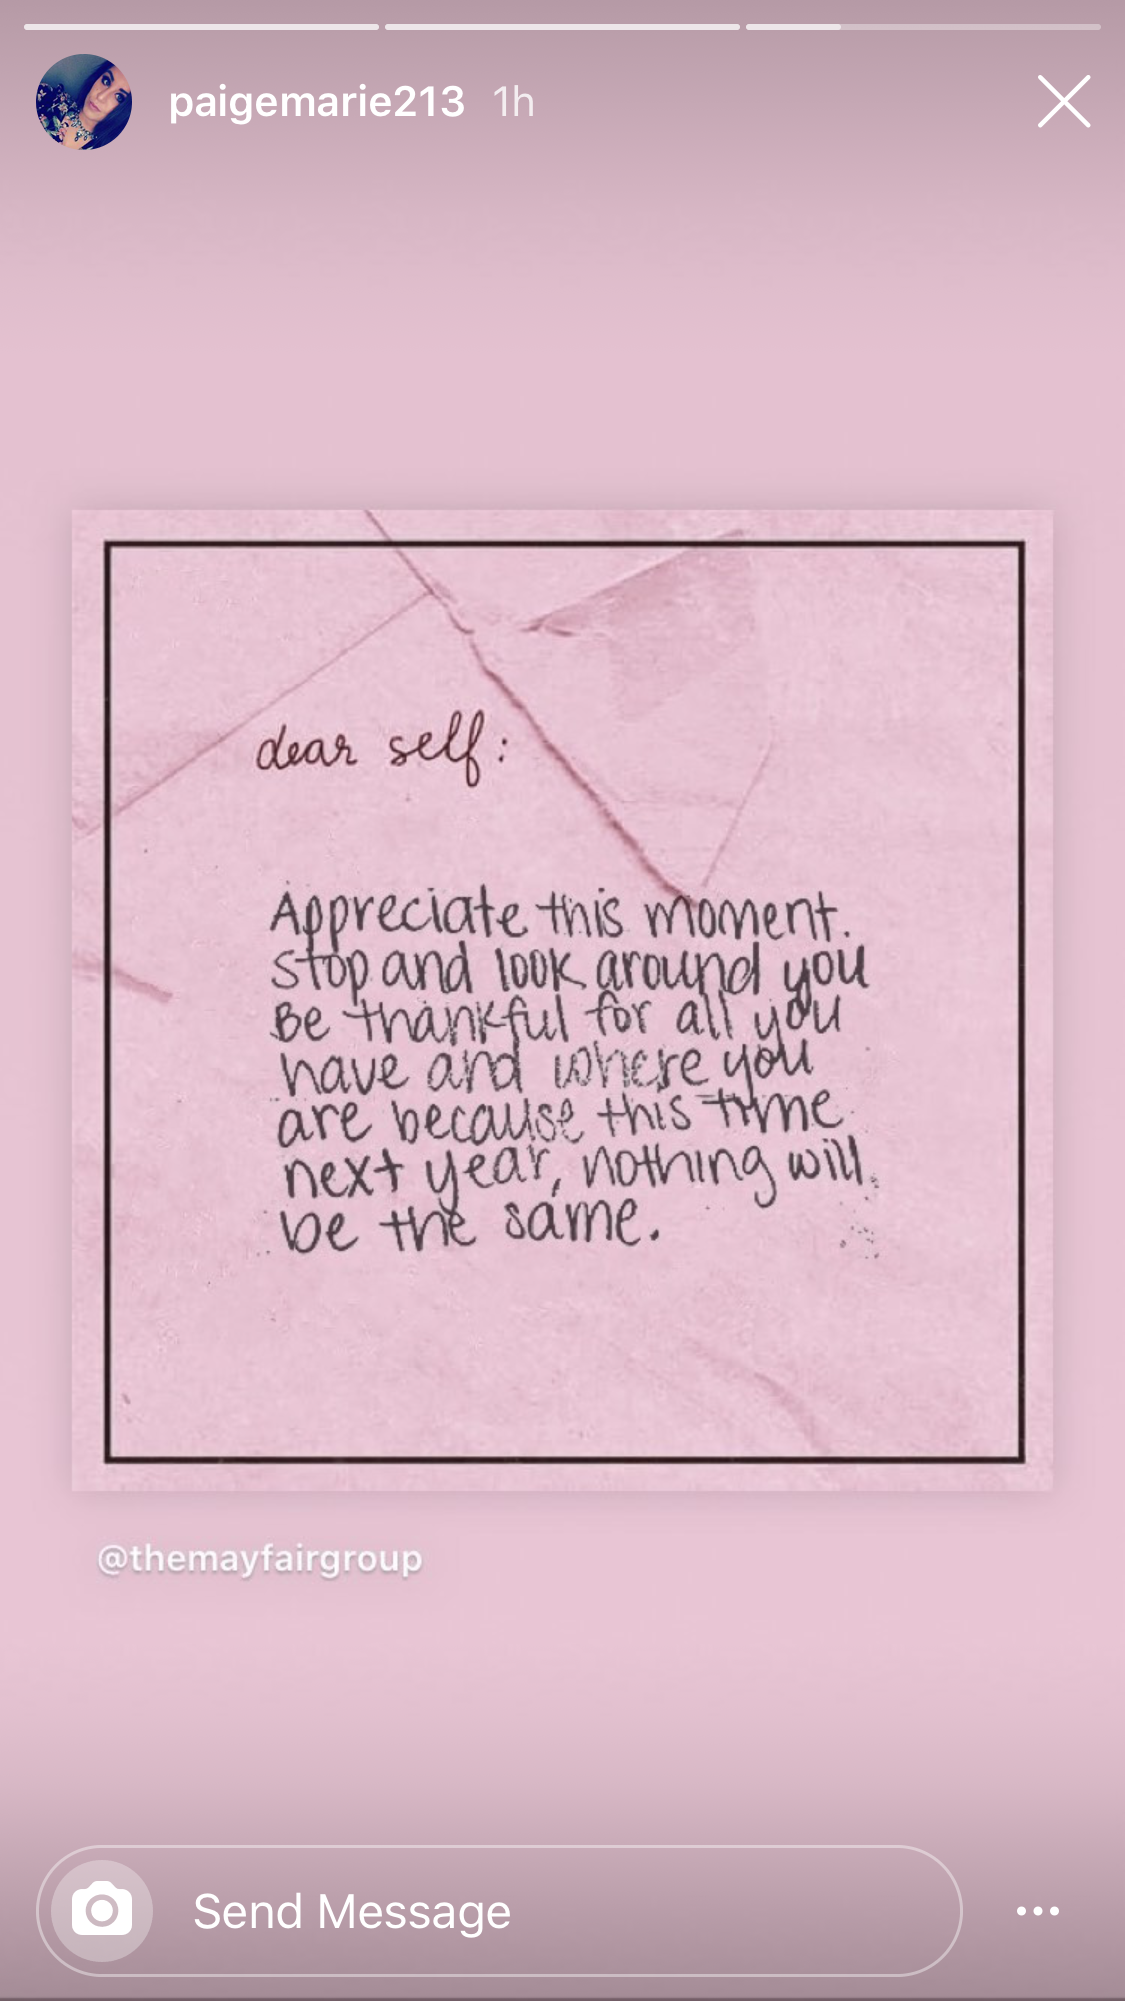 paigemarie213 1h
dear self:
Appreciate this moment.
Stop and look around you
Be thankful for all you
have and where you
are because this time
next year, nothing will
be the same.
@themayfairgroup
Send Message